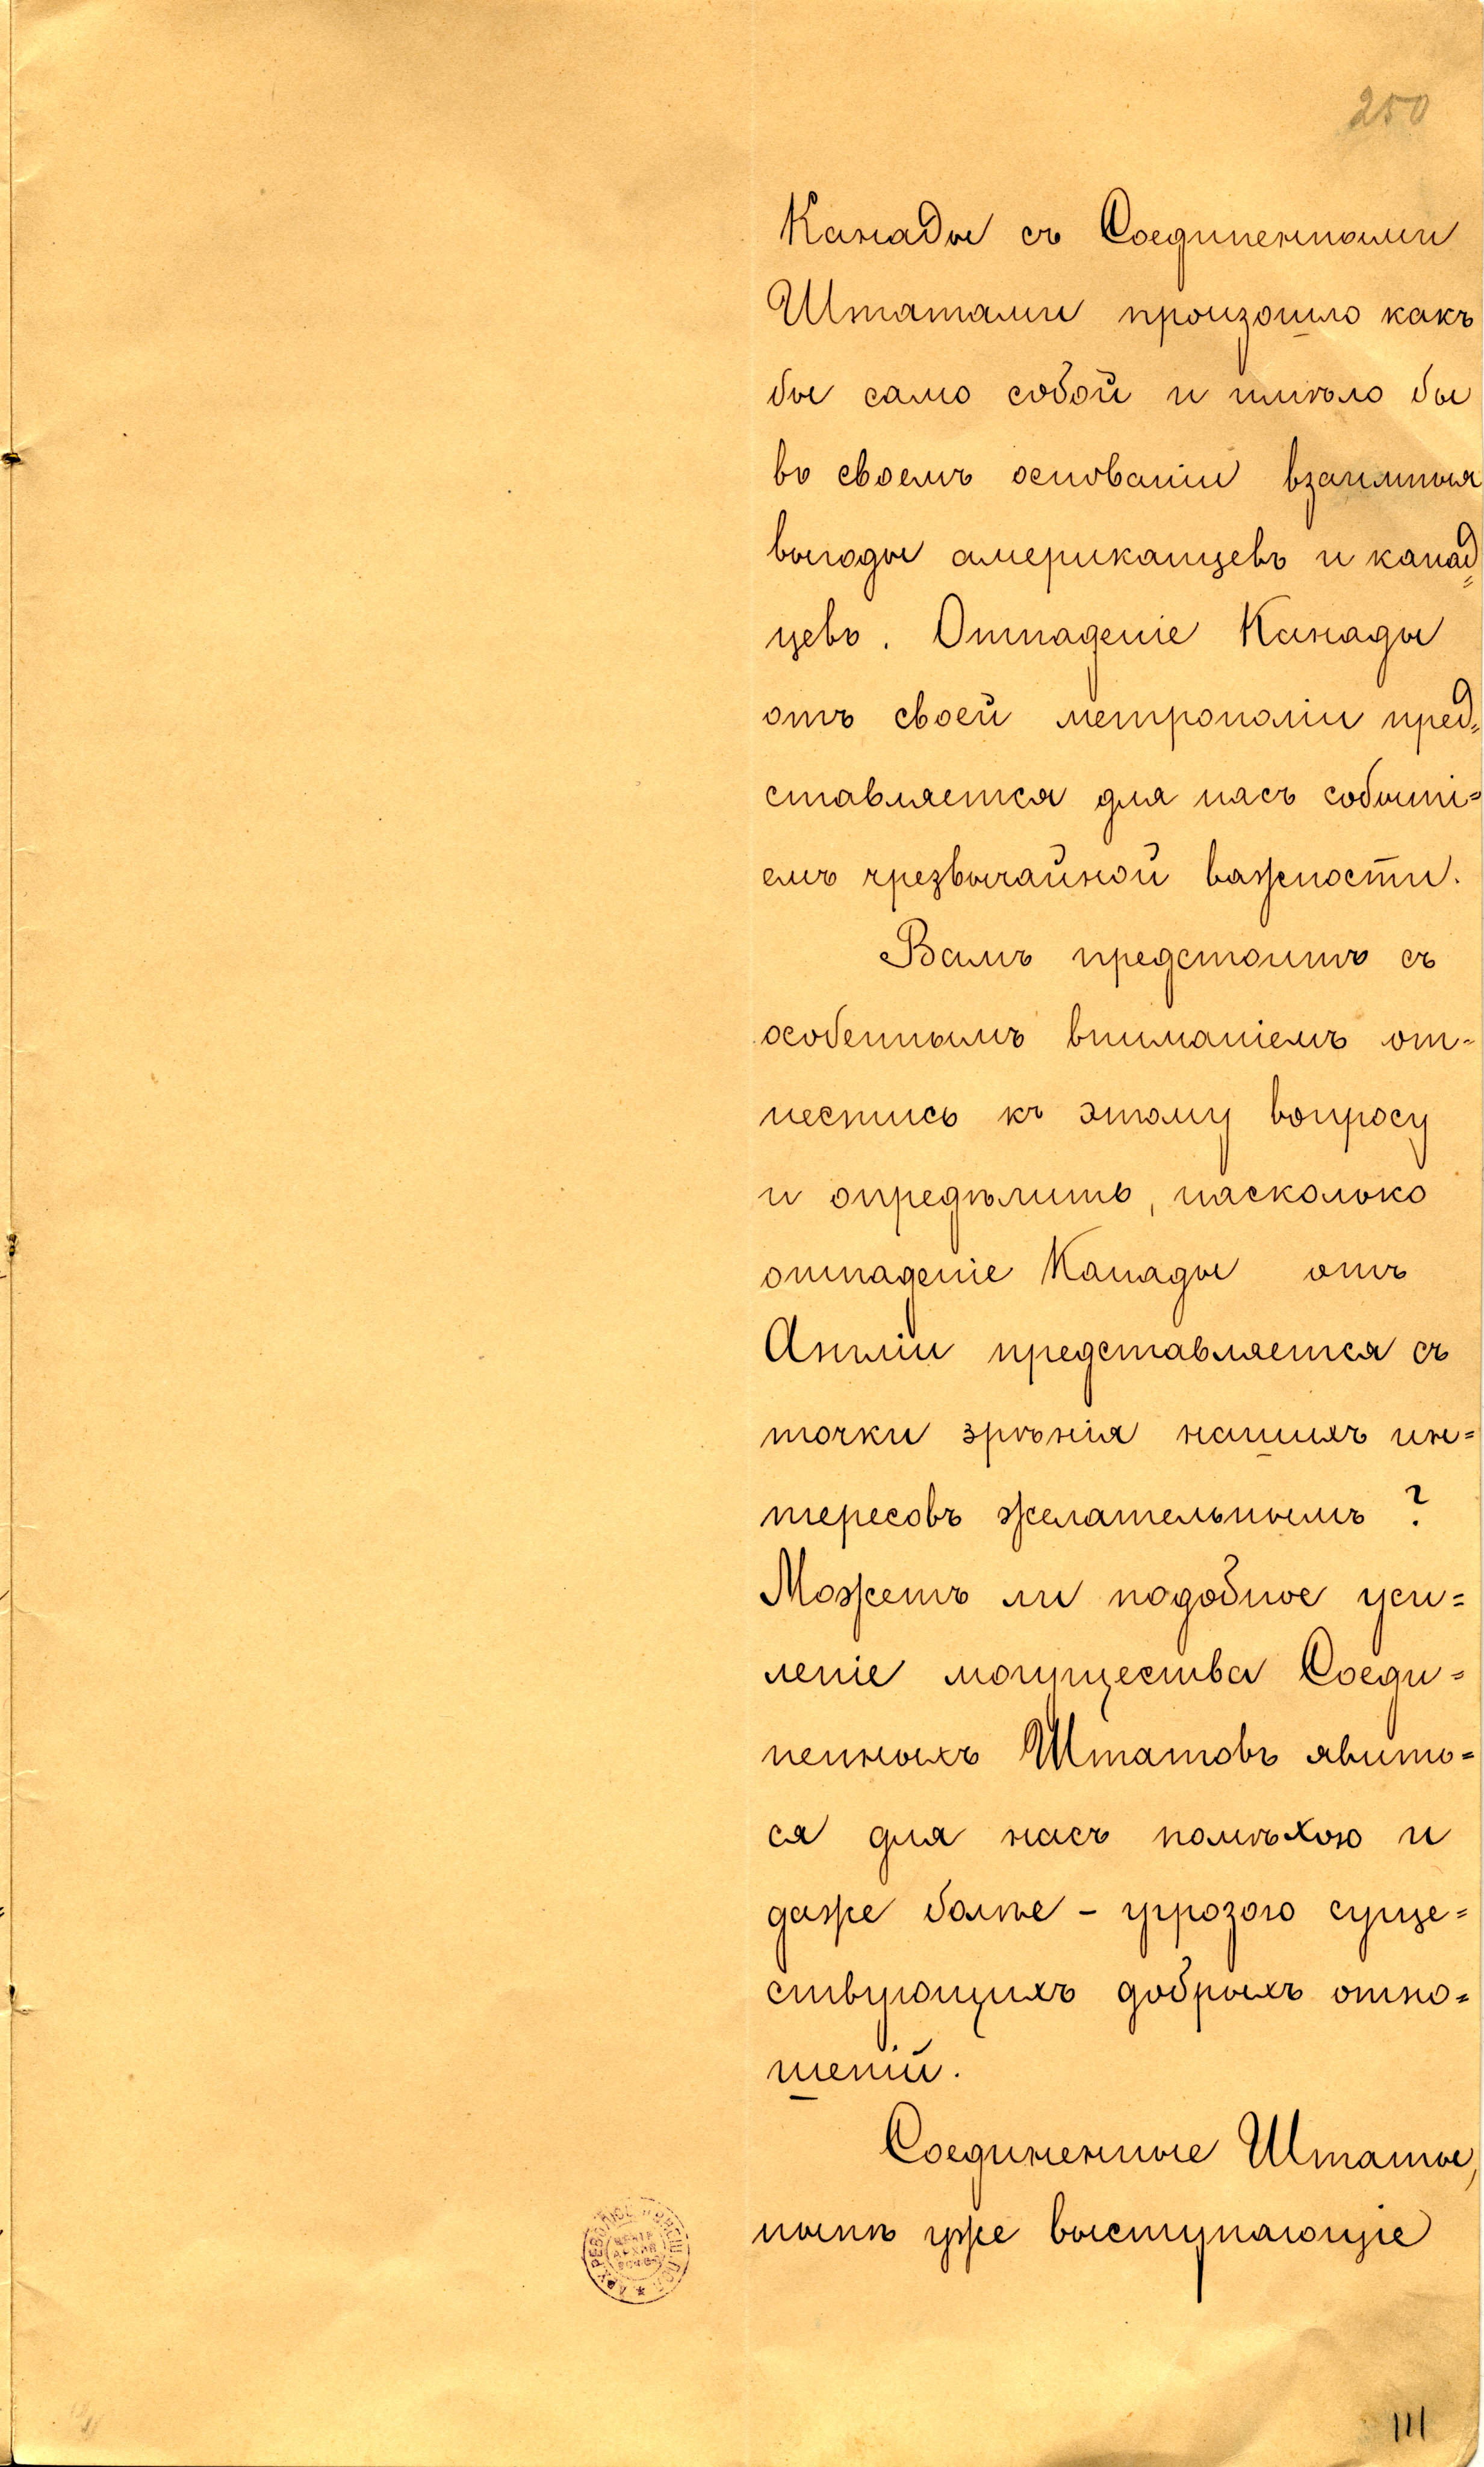 250
Канады съ Соединенными
Штатами произошло какъ
бы само собой и имѣло бы
въ своемъ основаніи взаимныя
выгоды американцевъ и канад=
цевъ. Отпаденіе Канады
отъ своей метрополіи пред=
ставляется для насъ событі=
емъ чрезвычайной важности.
Вамъ предстоитъ съ
особеннымъ вниманіемъ от=
нестись къ этому вопросу
и опредѣлить, насколько
отпаденіе Канады отъ
Англіи представляется съ
точки зрѣнія нашихъ ин=
тересовъ желательнымъ?
Можетъ ли подобное уси=
леніе могущества Соеди=
ненныхъ Штатовъ явить=
ся для насъ помѣхою и
даже болѣе – угрозою суще=
ствующихъ добрыхъ отно=
шеній.
Соединенные Штаты,
нынѣ уже выступающіе
111